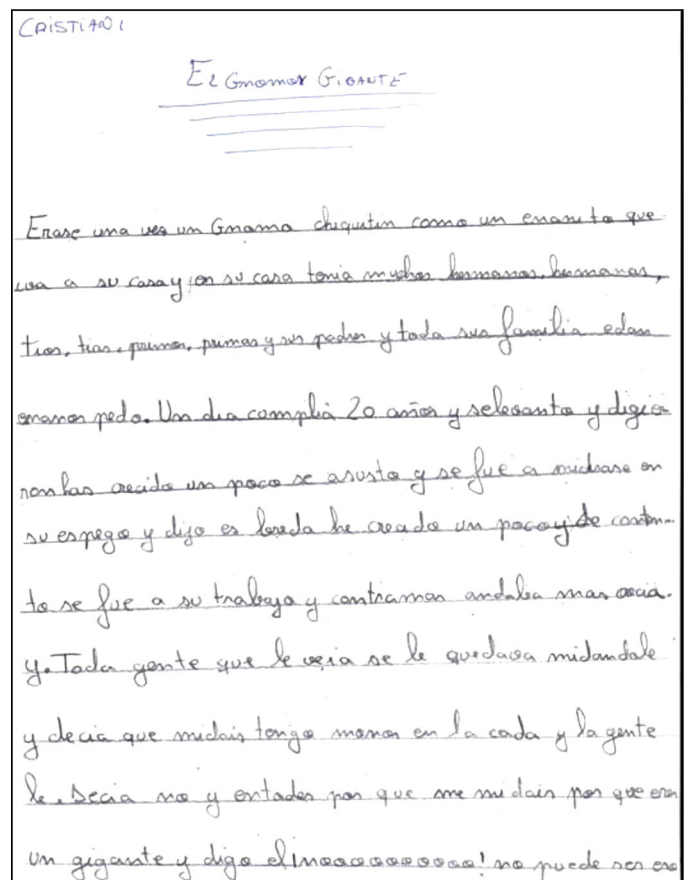 CRISTIAN
El Gnomo GIGANTE
Erase una ves un Gnomo chiquitin como un enanito que
iva a su casa y en su casa tenia muchos hermanos, hermanas,
tios, tias, primos, primas y sus padres y toda sus familia edan
enanos pedo. Un dia complia 20 años y selevanto y digie
ron has crecido un poco se asusto y se fue a midrase en
su espego y dijo es verda he crecido un poco y de conten
to se fue a su trabajo y contramas andaba mas crecia.
y. Toda gente que le veia se le quedava midandole
y decia que midais tengo monos en la cada y la gente
le. Decia no y entodes por que me midais por que eres
un gigante y digo el ¡noooooooooo! no puede ser ese